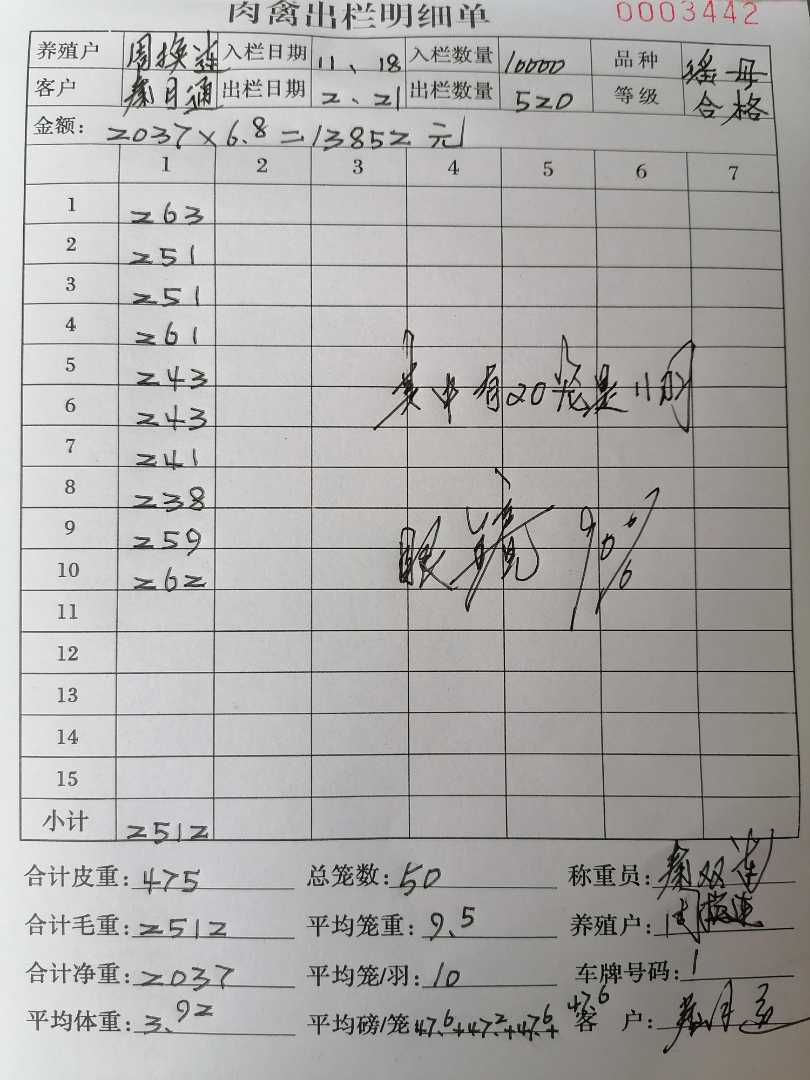 肉禽出栏明细单 0003442
养殖户 周换连 入栏日期 11、18 入栏数量 10000 品种 瑶母
客户 秦月通 出栏日期 2、21 出栏数量 520 等级 合格
金额: 2037×6.8=13852元
1 2 3 4 5 6 7
1 263
2 251
3 251
4 261
5 243
6 243
7 241
8 238
9 259
10 262
11
12
13
14
15
小计 2512
其中有20笼是11月
眼镜90%
合计皮重: 475 总笼数: 50 称重员: 秦双连
合计毛重: 2512 平均笼重: 9.5 养殖户: 周换连
合计净重: 2037 平均笼/羽: 10 车牌号码: 1
平均体重: 3.92 平均磅/笼 47.6+47.2+47.6+47.6 客户: 秦月通